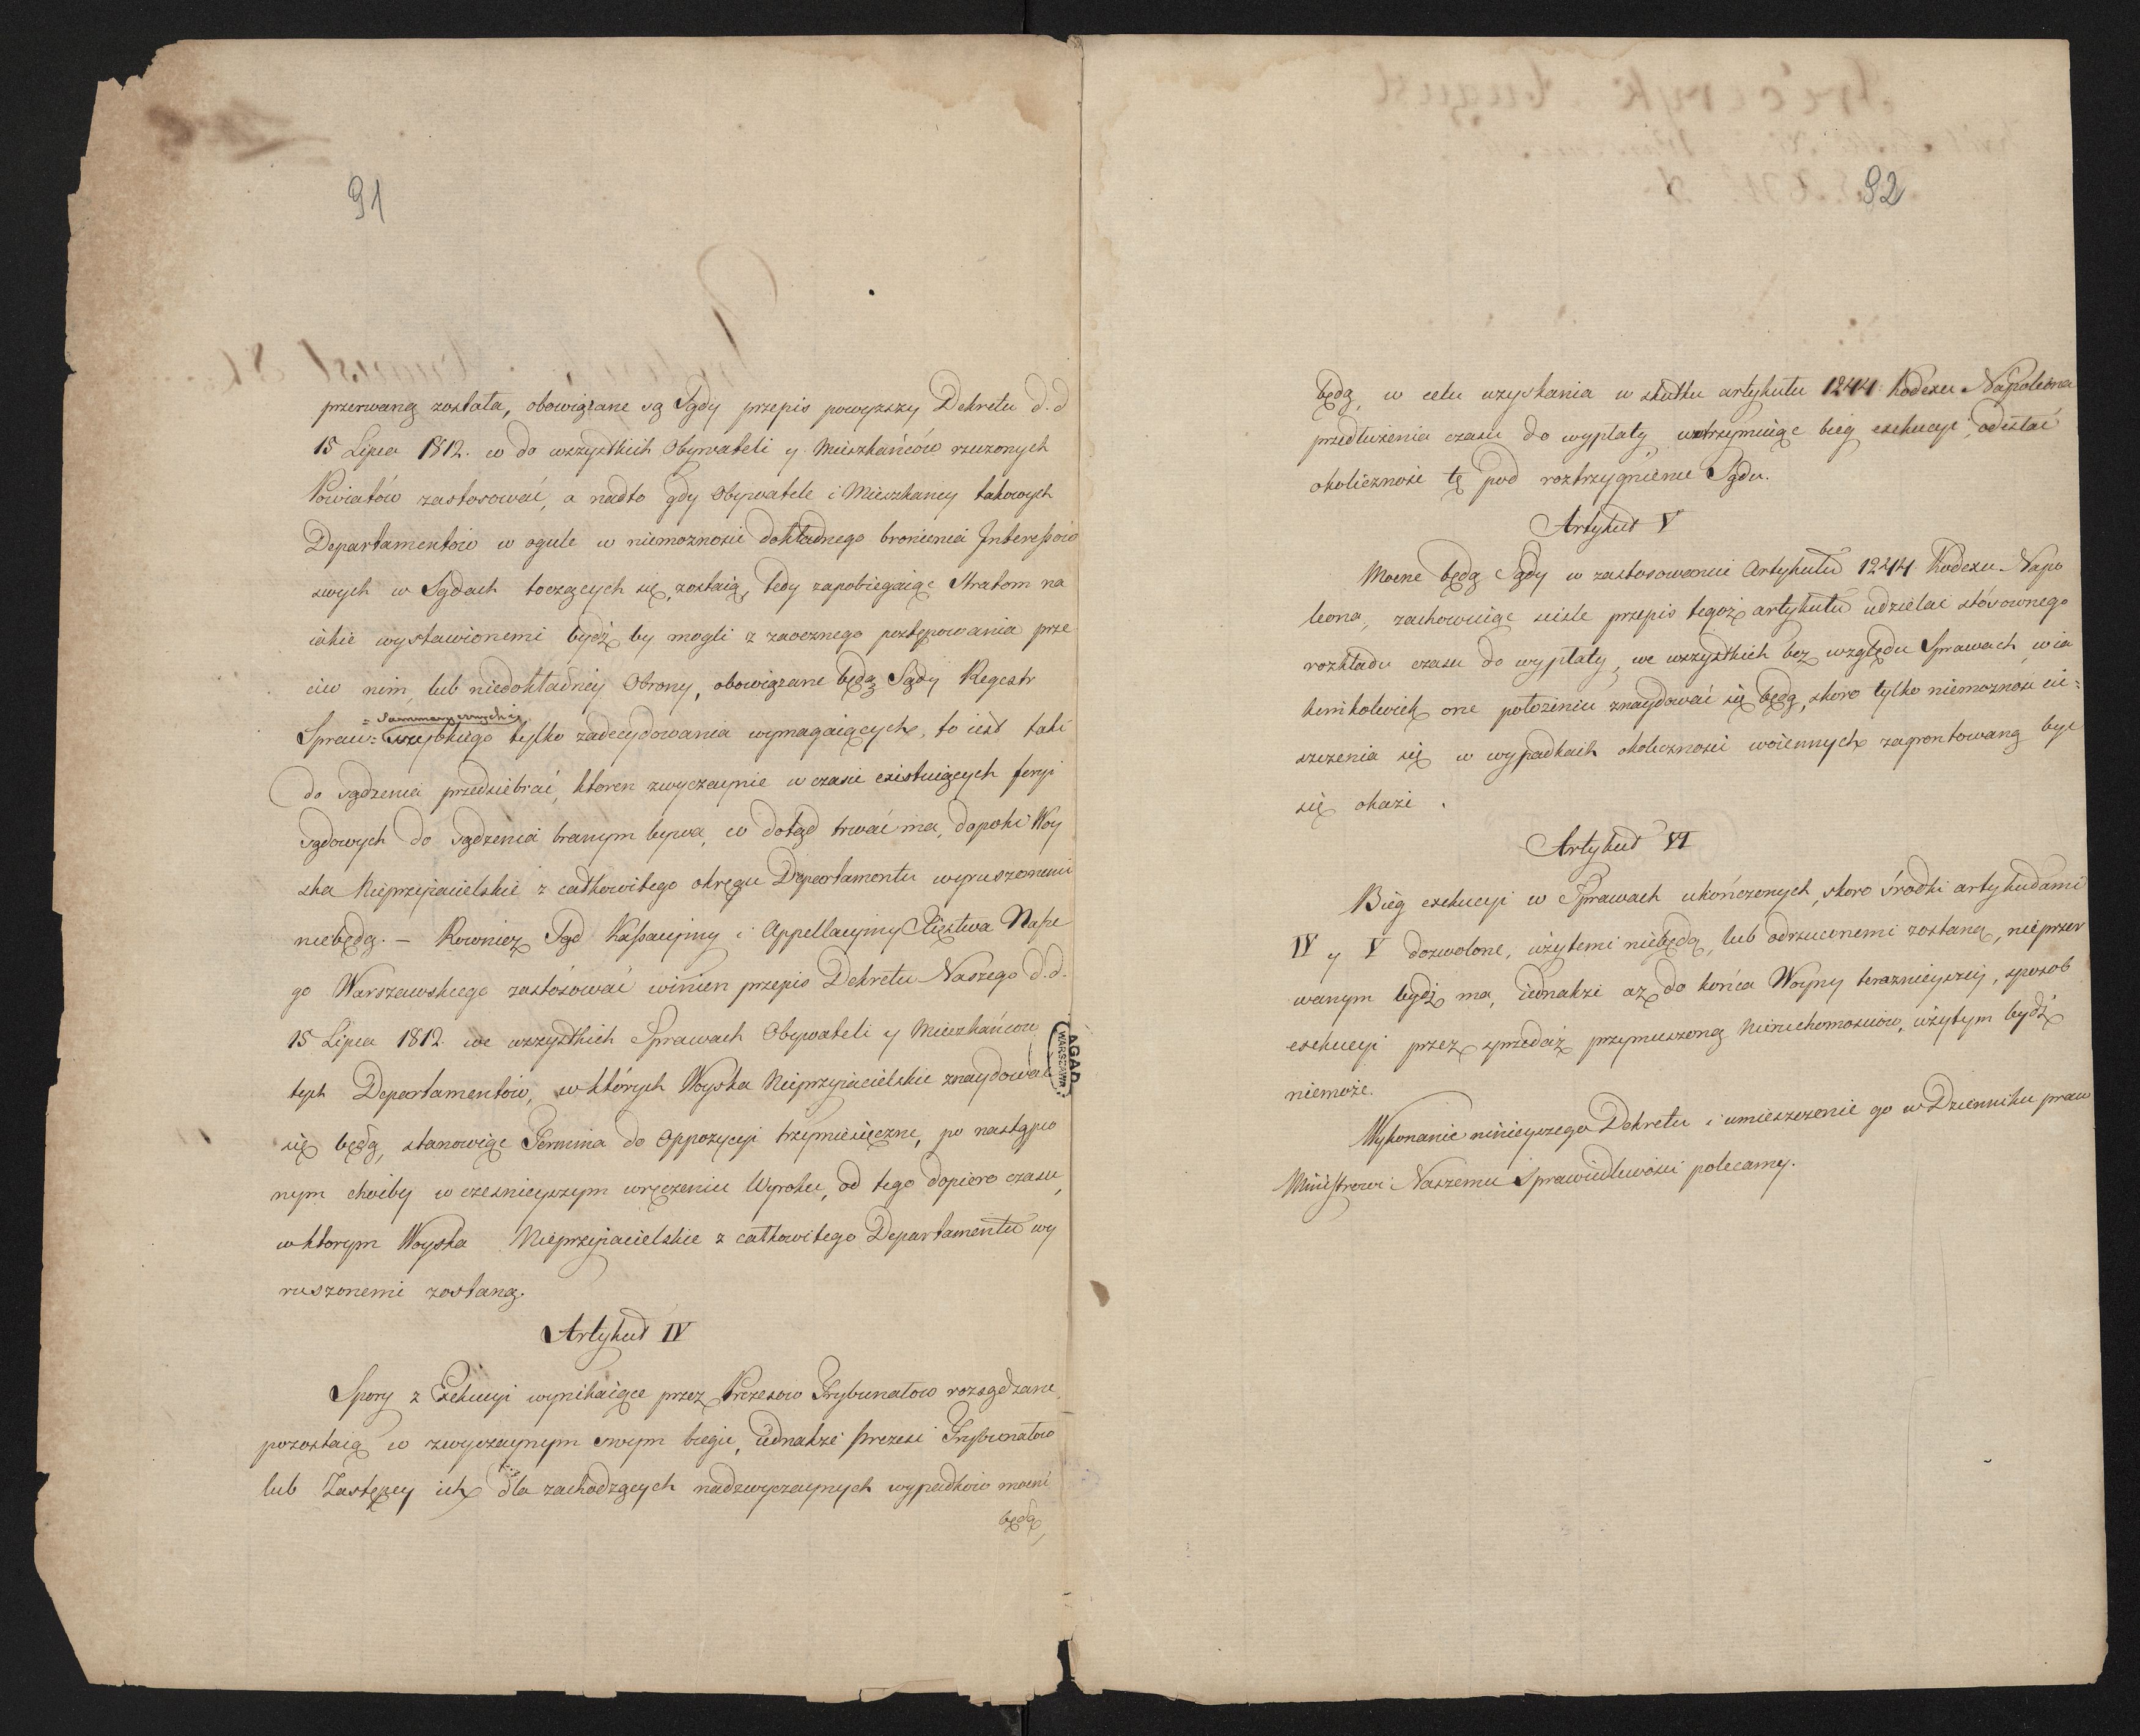 91
przerwaną została, obowiązane są Sądy przepis powyższy Dekretu d. d
15 Lipca 1812. w do wszystkich Obywateli y Mieszkańców rzeczonych
Powiatów zastosować, a nadto gdy Obywatele i Mieszkańcy takowych
Departamentów w ogule w niemożności dokładnego bronienia Interessów
swych w Sądach toczących się, zostaią, tedy zapobiegaiąc Stratom na
iakie wystawionemi bydź by mogli z zaocznego postępowania prze
ciw nim, lub niedokładney Obrony, obowiązane będą Sądy Regestr
= Summarycznych i
Spraw = szybkiego tylko zadecydowania wymagaiących, to iest taki
do sądzenia przedsiebrać, ktoren zwyczaynie w czasie existuiących feryi
sądowych do sądzenia branym bywa, co dotąd trwać ma, dopoki Woy
ska Nieprzyiacielskie z całkowitego okręgu Departamentu wyruszonemi
niebędą. — Rownież Sąd Kassacyiny i Appellacyiny Xięstwa Nasze
go Warszawskiego zastósować winien przepis Dekretu Naszego d. d.
15 Lipca 1812. we wszystkich Sprawach Obywateli y Mieszkańców
tych Departamentów, w których Woyska Nieprzyiacielskie znaydować
się będą, stanowiąc Termina do Oppozycyi trzymiesięczne, po nastąpio
nym choćby wcześnieyszym wręczeniu Wyroku, od tego dopiero czasu,
w ktorym Woyska Nieprzyiacielskie z całkowitego Departamentu wy
ruszonemi zostaną.
Artykuł IV
Spory z Exekucyi wynikaiące przez Prezesow Trybunałow rozsądzane,
pozostaią w zwyczaynym swym biegu, iednakże Prezesi Trybunałow
lub Zastępcy ich dla zachodzących nadzwyczaynych wypadkow mocni
będą,
AGAD
WARSZAWA
92
będą, w celu uzyskania w skutku artykułu 1244 Kodexu Napoleona
przedłużenia czasu do wypłaty, wstrzymuiąc bieg exekucyi, odesłać
okoliczność tę pod roztrzygnienie Sądu.
Artykuł V
Mocne będą Sądy w zastosowaniu Artykułu 1244 Kodexu Napo
leona, zachowuiąc ściśle przepis tegoż artykułu udzielać stósownego
rozkładu czasu do wypłaty, we wszystkich bez względu Sprawach, w ia
kimkolwiek one położeniu znaydować się będą, skoro tylko niemożność ui=
szczenia się w wypadkach okoliczności woiennych zagrontowaną być
się okaże.
Artykuł VI
Bieg exekucyi w Sprawach ukończonych, skoro środki artykułami
IV y V dozwolone, użytemi niebędą, lub odrzuconemi zostaną, nieprzer
wanym bydź ma, iednakże aż do końca Woyny teraznieyszey, sposob
exekucyi przez sprzedaż przymuszoną Nieruchomościów, użytym bydź
niemoże.
Wykonanie ninieyszego Dekretu i umieszczenie go w Dzienniku praw
Ministrowi Naszemu Sprawiedliwości polecamy.